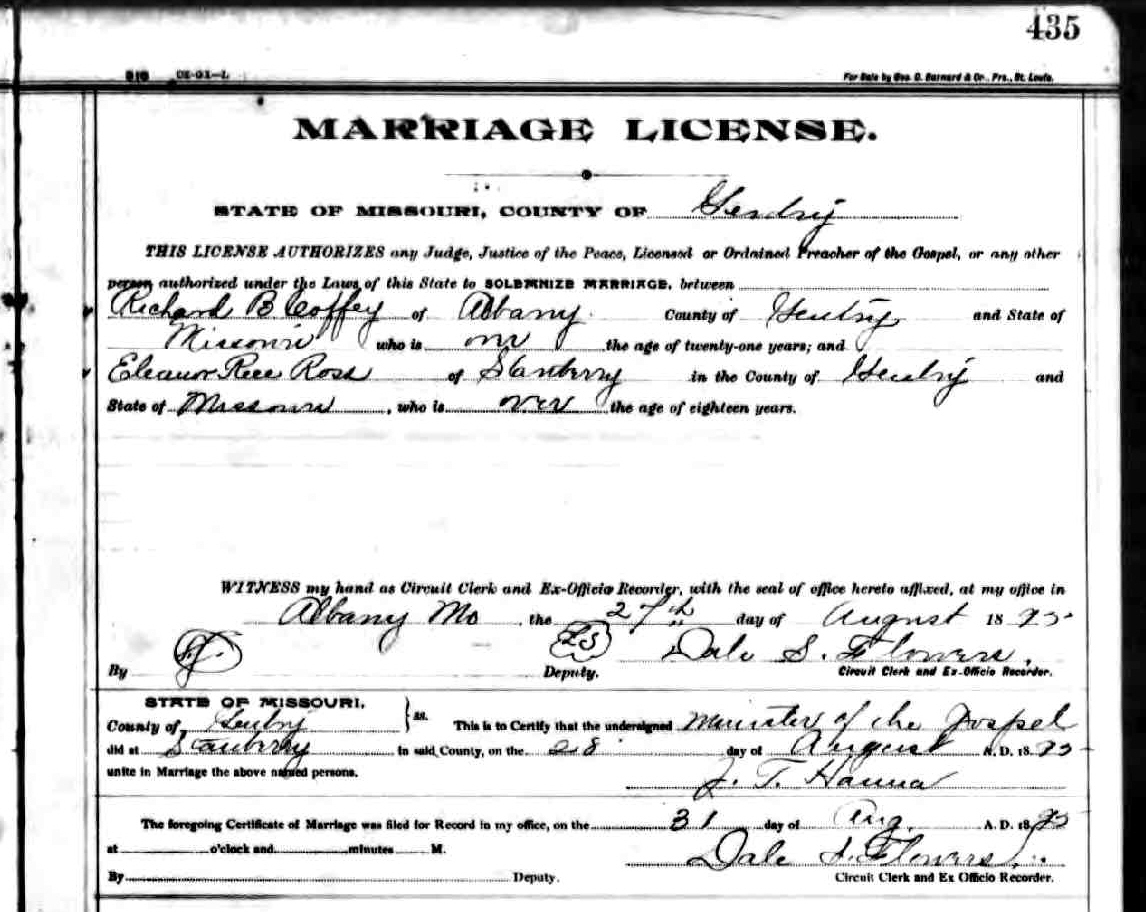 435
For Sale by Geo. D. Barnard & Co., Prs., St. Louis.
MARRIAGE LICENSE.
STATE OF MISSOURI, COUNTY OF Gentry
THIS LICENSE AUTHORIZES any Judge, Justice of the Peace, Licensed or Ordained Preacher of the Gospel, or any other
person authorized under the Laws of this State to SOLEMNIZE MARRIAGE, between
Richard B Coffey of Albany County of Gentry and State of
Missouri who is over the age of twenty-one years; and
Eleanor Rece Ross of Stanberry in the County of Gentry and
State of Missouri, who is over the age of eighteen years.
WITNESS my hand as Circuit Clerk and Ex-Officio Recorder, with the seal of office hereto affixed, at my office in
Albany Mo, the 27th day of August 1895
By LS Deputy. Dale S. Flowers, Circuit Clerk and Ex-Officio Recorder.
STATE OF MISSOURI,
County of Gentry } ss. This is to Certify that the undersigned Minister of the Gospel
did at Stanberry in said County, on the 28 day of August A. D. 1895
unite in Marriage the above named persons.
J. T. Hanna
The foregoing Certificate of Marriage was filed for Record in my office, on the 31 day of Aug. A. D. 1895
at o'clock and minutes M. Dale S. Flowers
By Deputy. Circuit Clerk and Ex Officio Recorder.